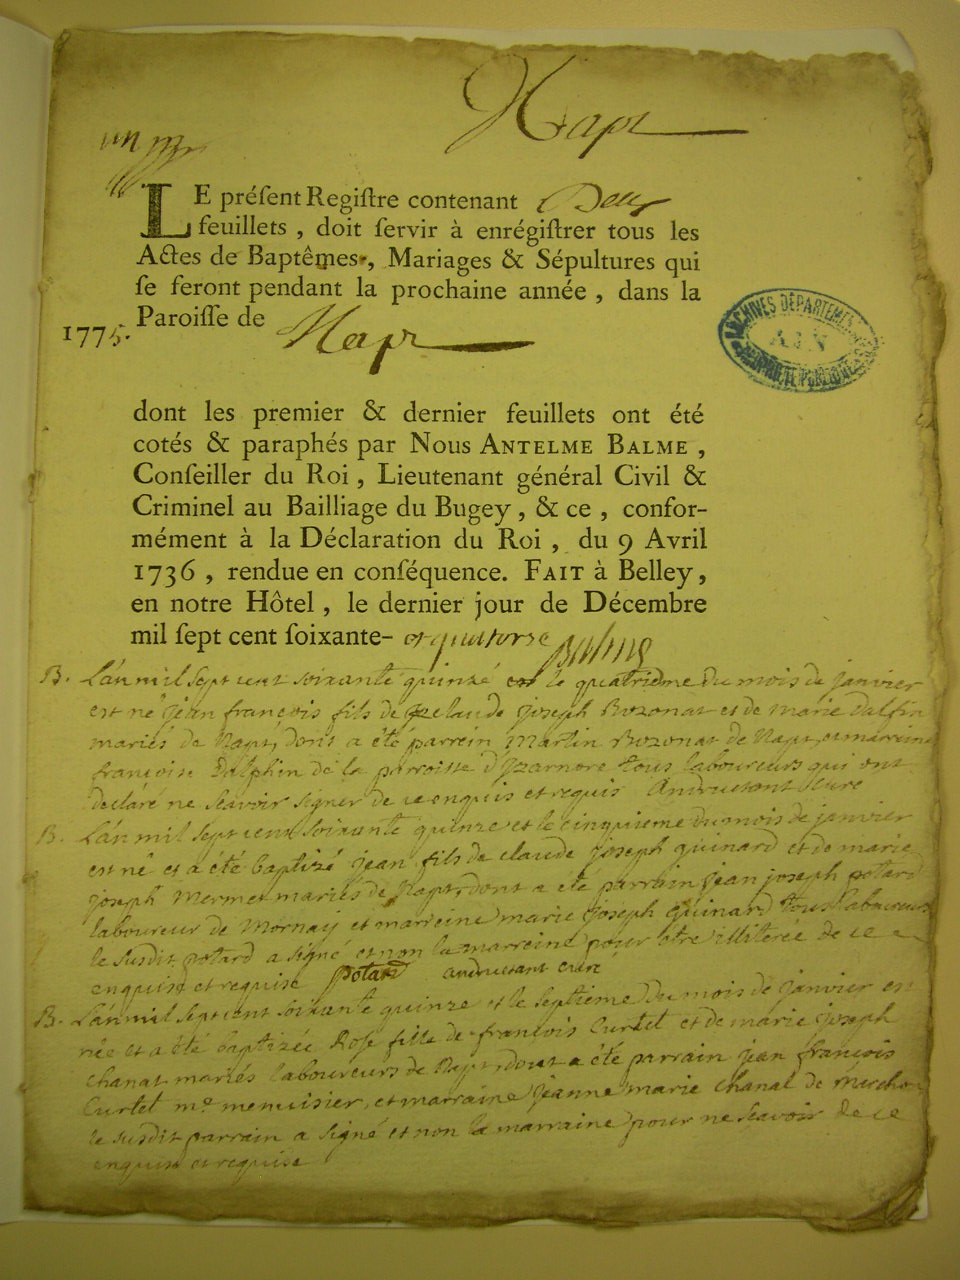 Napt
un
LE préſent Regiſtre contenant Deux
feuillets, doit ſervir à enrégiſtrer tous les
Actes de Baptêmes, Mariages & Sépultures qui
ſe ſeront pendant la prochaine année, dans la
Paroiſſe de Napt
1775.
ARCHIVES DÉPARTEMENTALES
AIN
PROPRIÉTÉ PUBLIQUE
dont les premier & dernier feuillets ont été
cotés & paraphés par Nous ANTELME BALME,
Conſeiller du Roi, Lieutenant général Civil &
Criminel au Bailliage du Bugey, & ce, confor-
mément à la Déclaration du Roi, du 9 Avril
1736, rendue en conſéquence. FAIT à Belley,
en notre Hôtel, le dernier jour de Décembre
mil ſept cent ſoixante- et quatorse Balme
B. L'an mil sept cent soixante quinze et le quatrieme du mois de janvier
est né jean françois fils de claude joseph Bozonat et de marie dalfin
mariés de Napt, dont a été parrein Martin Bozonat de Napt, et marreine
françoise Dalphin de la parroisse d'Izarnore tous laboureurs qui ont
declaré ne scavoir signer de ce enquis et requis Andruetant Cure
B. L'an mil sept cent soixante quinze et le cinquieme du mois de janvier
est né et a été baptizé jean fils de claude joseph guinard et de marie
joseph Mermet mariés de Napt, dont a été parrain jean joseph potard
laboureur de Mornay et marreine marie joseph guinard tous laboureurs
le susdit potard a signé et non la marreine pour etre illiterée de ce
enquise et requise potard andruetant curé
B. L'an mil sept cent soixante quinze et le septieme du mois de janvier est
née et a été baptizée Rose fille de françois Curtet et de marie joseph
chanat mariés laboureurs de Napt, dont a été parrain jean françois
Curtet me menuisier, et marraine jeanne marie chanal de
le susdit parrain a signé et non la marraine pour ne scavoir de ce
enquise et requise